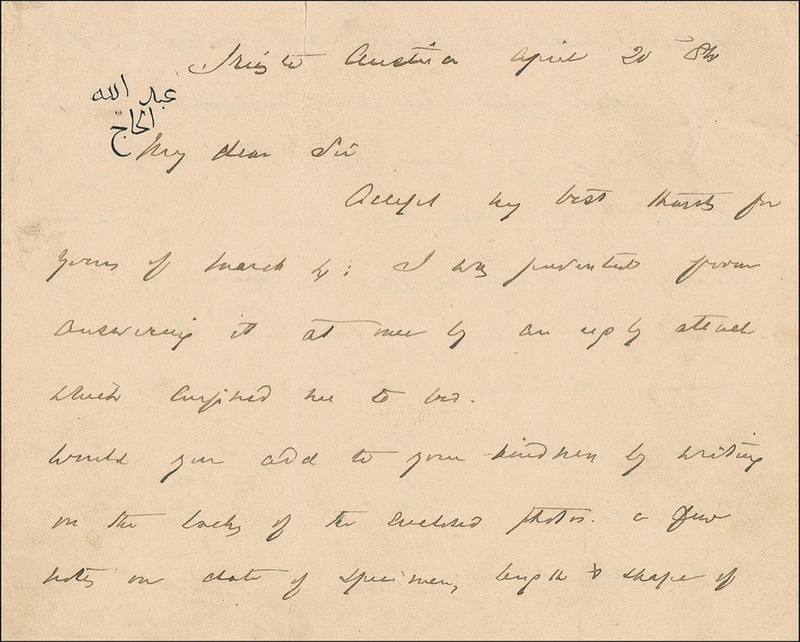 Trieste Austria April 20 84
عبد الله
الحاجّ
My dear Sir
Accept my best thanks for
yours of March 4; I was prevented from
answering it at once by an ugly attack
which confined me to bed.
Would you add to your kindness by writing
on the backs of the enclosed photos. a few
notes on date of specimen, length & shape of